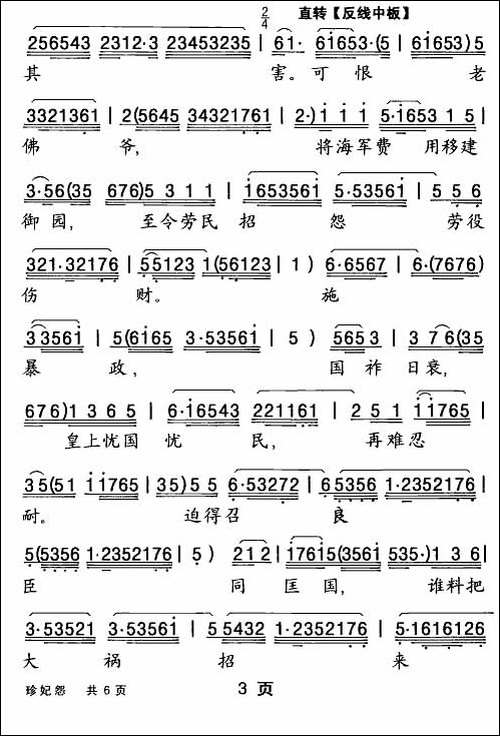 2/4 直转【反线中板】
256543 2312·3 23453235 | 61· 61653·(5 | 61653)5
其 害。可 恨 老
3321361 | 2(5645 34321761 | 2·)1 1 1 5·1653 1 5 |
佛 爷, 将海军费 用移建
3·56(35 676)5 3 1 1 | 1653561 5·53561 | 5 5 6
御园, 至令劳民 招 怨 劳役
321·32176 | 55123 1(56123 | 1 ) 6·6567 | 6·(7676)
伤 财。 施
33561 | 5(6165 3·53561 | 5 ) 565 3 | 3 7 6(35
暴 政, 国祚 日衰,
676)1 3 6 5 | 6·16543 221161 | 2 5 1 11765 |
皇上忧国 忧 民, 再难忍
3 5(51 11765 | 35)5 5 6·53272 | 65356 1·2352176 |
耐。 迫得召 良
5(5356 1·2352176 | 5 ) 212 | 17615(3561 535·)1 3 6 |
臣 同 匡 国, 谁料把
3·53521 3·53561 | 5 5432 1·2352176 | 5·1616126
大 祸 招 来
珍妃怨 共 6 页 3 页